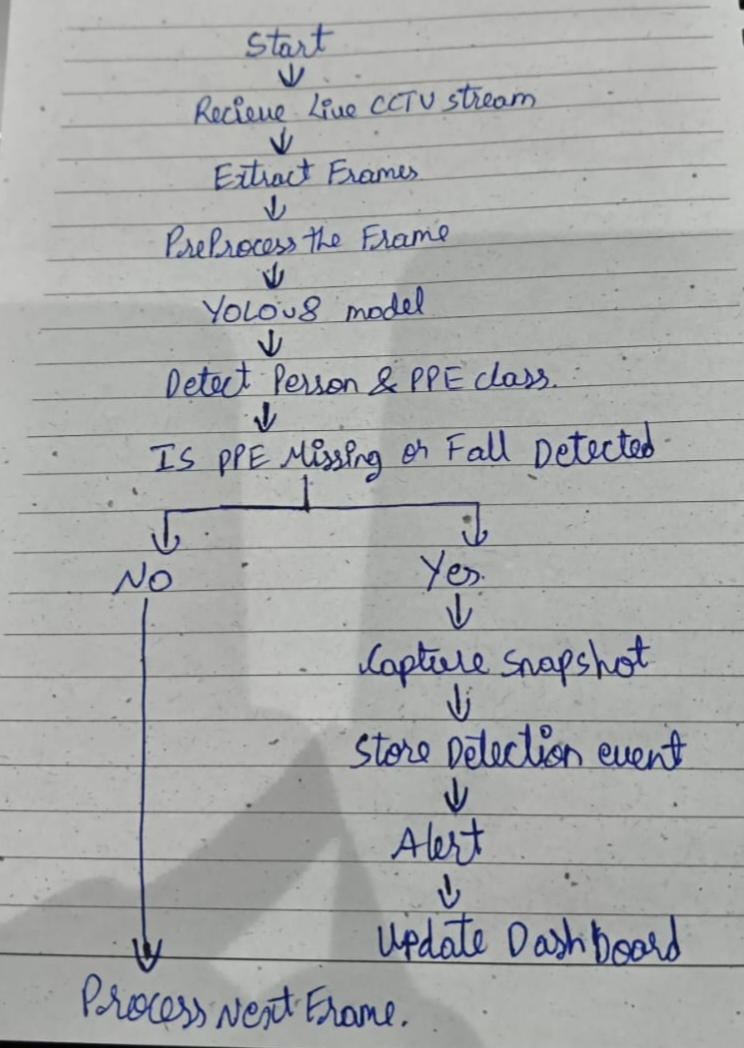 Start
Recieve Live CCTV stream
Extract Frames
PreProcess the Frame
YOLOv8 model
Detect Person & PPE class.
Is PPE Missing or Fall Detected
NO
Yes.
Capture Snapshot
Store Detection event
Alert
Update Dashboard
Process Next Frame.